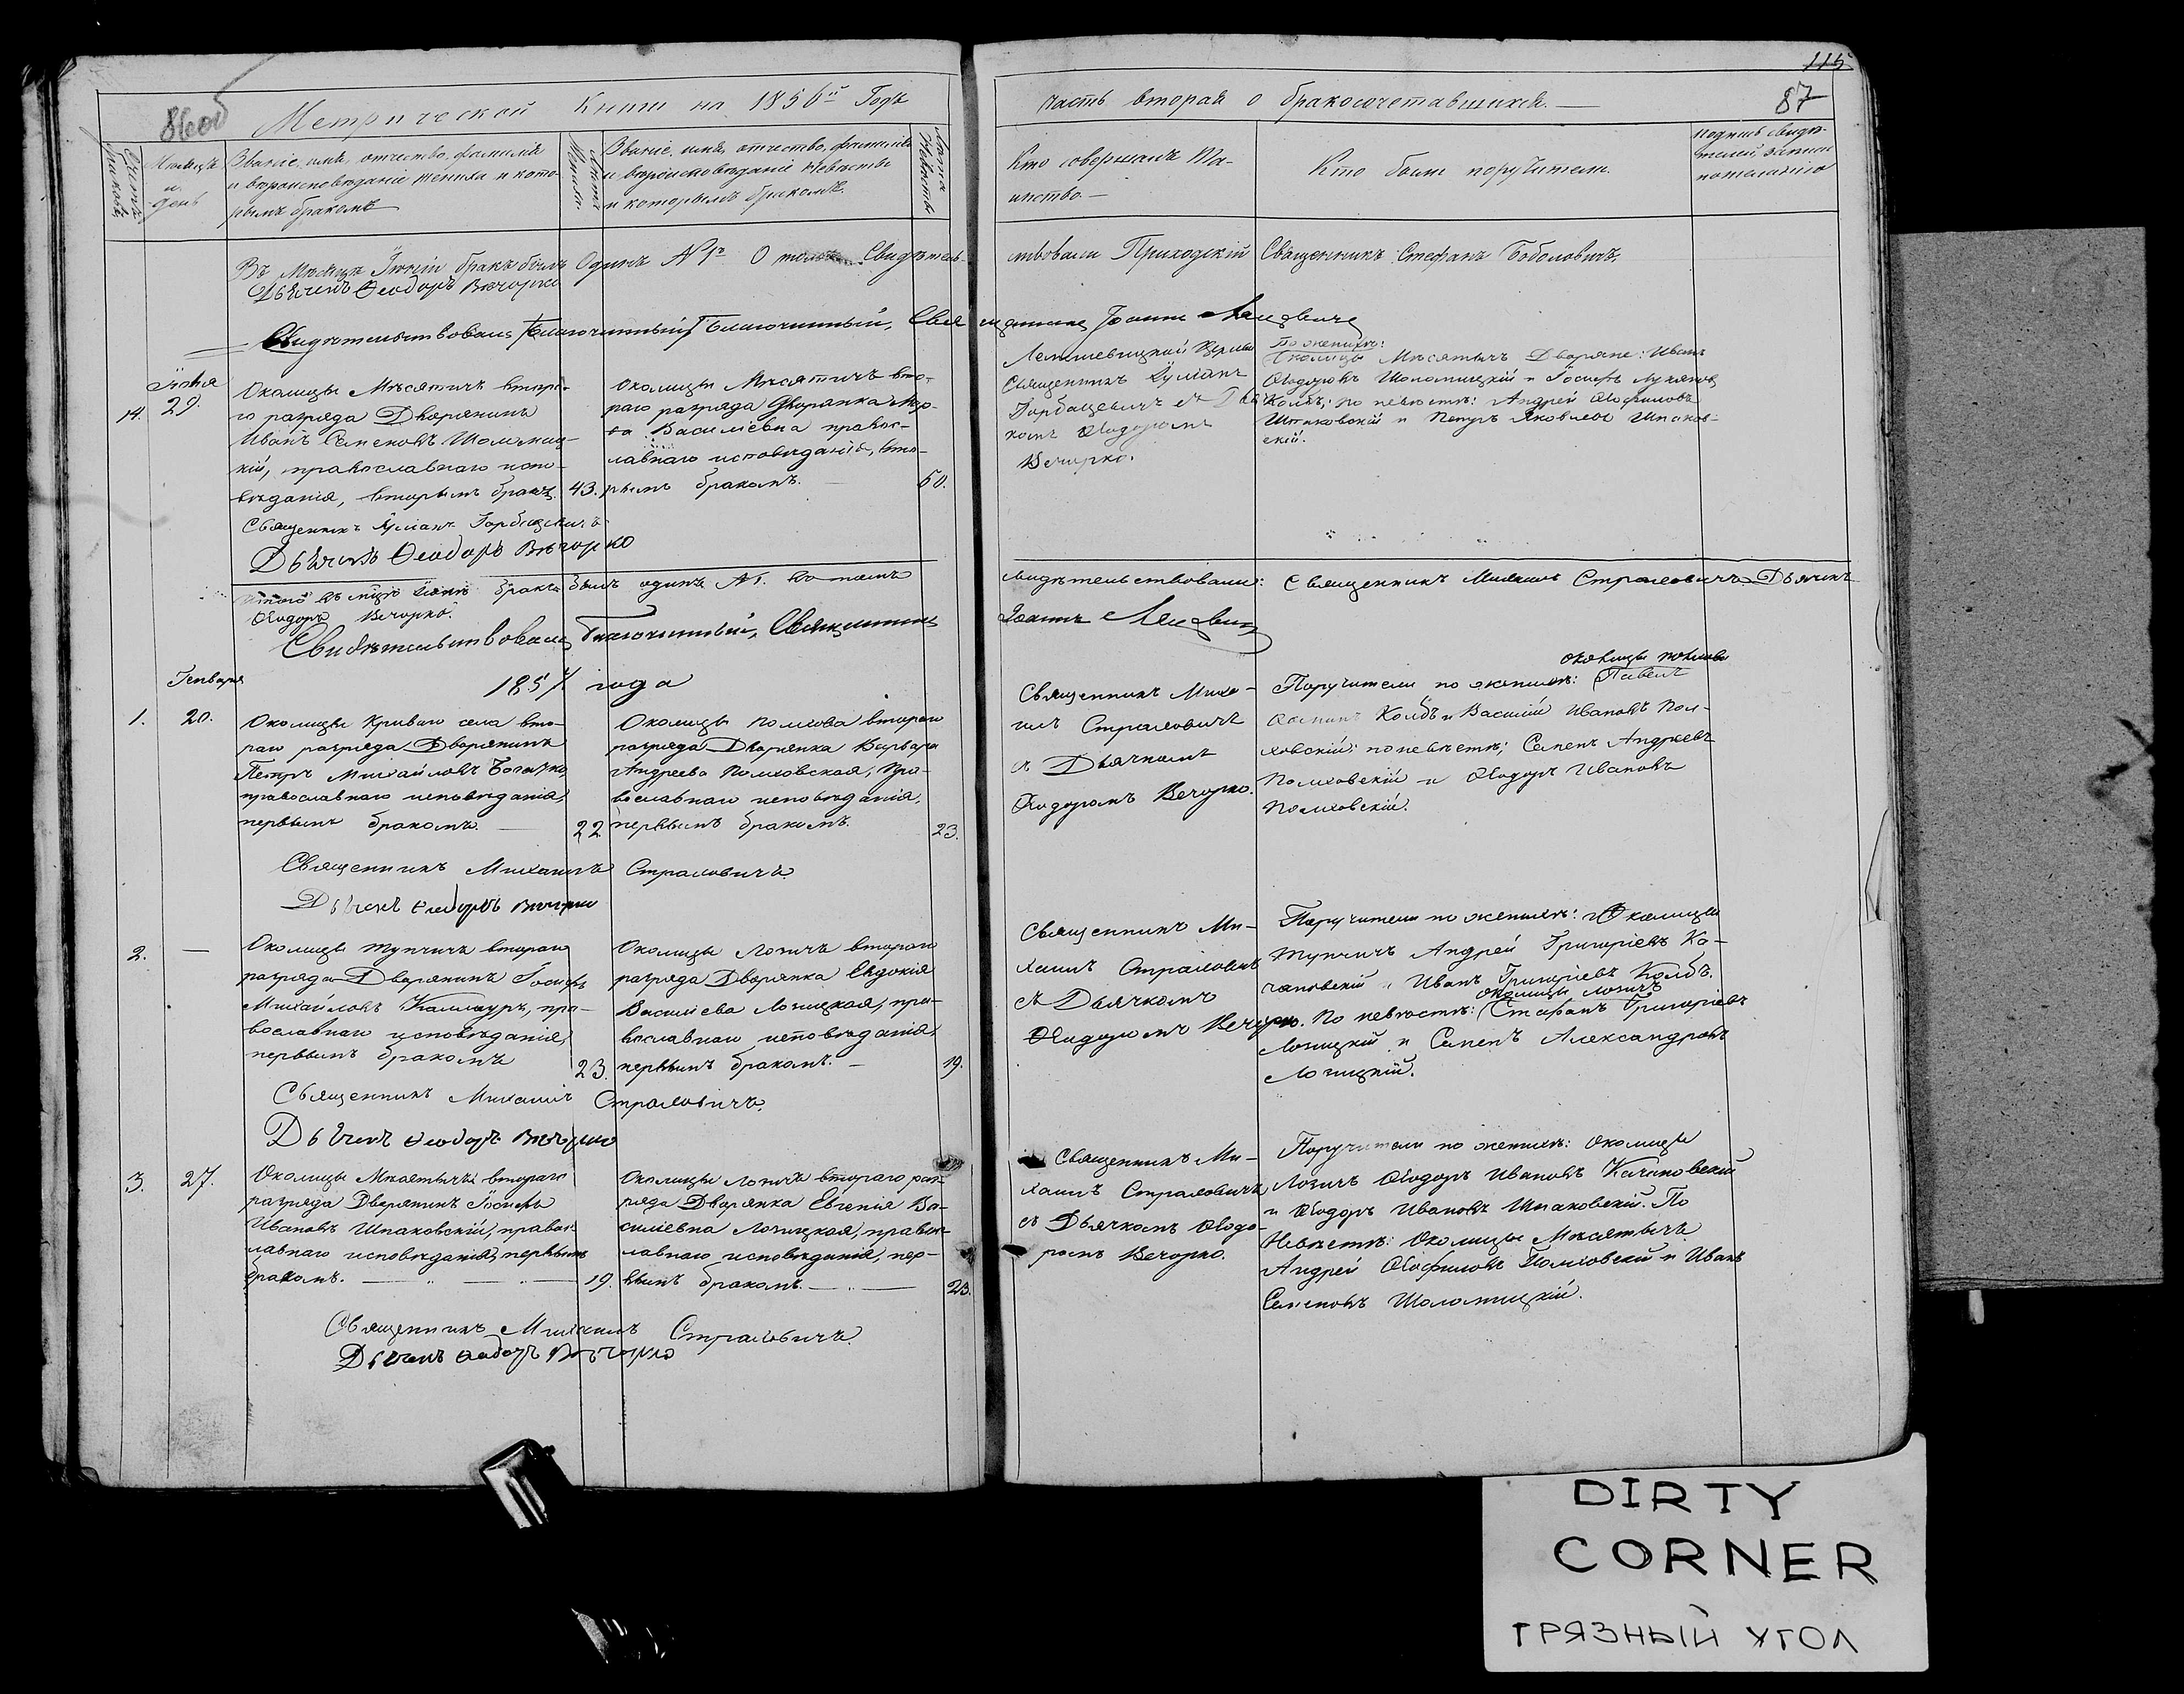 115
86об
87
Метрической Книги на 1856й Годъ
часть вторая о бракосочетавшихся.
Мѣсяцъ и день
Званіе, имя, отчество, фамилія
и вѣроисповѣданіе жениха и кото-
рымъ бракомъ
Лѣта Жениха
Званіе, имя, отчество, фамилія
и вѣроисповѣданіе Невѣсты
и которымъ бракомъ.
Лѣта Невѣсты
Кто совершалъ Та-
инство.
Кто были поручители.
подпись свидѣ-
телей записи
по желанію
Въ Мѣсяцѣ бракъ былъ Одинъ №1й О томъ Свидѣтель-
ствовали Приходскій Священникъ Стефанъ
Дьячекъ Ѳеодоръ Вечорко
Свидѣтельствовалъ Благочинный, Священникъ Іоаннъ
Іюня
14. 29.
Околицы Мѣсятичъ второ-
го разряда Дворянинъ
Иванъ Семеновъ Шоломиц-
кій, православнаго испо-
вѣданія, вторымъ бракъ. 43.
Околицы Мѣсятичъ вто-
раго разряда Дворянка
Василіевна правос-
лавнаго исповѣданія, вто-
рымъ бракомъ. 50.
Церкви
Священникъ Іуліанъ
Горбацевичъ съ
Ѳеодоромъ
Вечорко.
По женихѣ:
Околицы Мѣсятичъ Дворяне: Иванъ
Ѳеодоровъ Шоломицкій и Іосифъ
Колбъ; по невѣстѣ: Андрей Ѳеофиловъ
Шпаковскій и Петръ Яковлевъ Шпаков-
скій.
Священникъ Іуліанъ Горбацевичъ
Дьячекъ Ѳеодоръ Вечорко
Итого въ мцѣ Іюнѣ бракъ былъ одинъ №1. О томъ
свидѣтельствовали: Священникъ Михаилъ Страловичъ Дьячекъ
Ѳеодоръ Вечорко.
Свидѣтельствовалъ Благочинный, Священникъ
Іоаннъ
Генваря
1857 года
1. 20.
Околицы Криваго села вто-
раго разряда Дворянинъ
Петръ Михайловъ
православнаго исповѣданія,
первымъ бракомъ. 22
Околицы Полхова втораго
разряда Дворянка Варвара
Андреева Полховская, пра-
вославнаго исповѣданія,
первымъ бракомъ. 23.
Священникъ Миха-
илъ Страловичъ
съ Дьячкомъ
Ѳеодоромъ Вечорко.
околицы Полхова
Поручители по женихѣ: Павелъ
Колбъ и Василій Ивановъ Пол-
ховскій; по невѣстѣ; Семенъ Андреевъ
Полховскій и Ѳеодоръ Ивановъ
Полховскій.
Священникъ Михаилъ Страловичъ.
Дьячекъ Ѳеодоръ Вечорко
2. —
Околицы Тупчичъ втораго
разряда Дворянинъ Іосифъ
Михайловъ Каллауръ, пра-
вославнаго исповѣданія,
первымъ бракомъ 23.
Околицы Лозичъ втораго
разряда Дворянка Евдокія
Василіева Лозицкая, пра-
вославнаго исповѣданія,
первымъ бракомъ. 19.
Священникъ Ми-
хаилъ Страловичъ
съ Дьячкомъ
Ѳеодоромъ Вечорко.
Поручители по женихѣ: Околицы
Тупчичъ Андрей Григоріевъ Ка-
чановскій и Иванъ Григоріевъ Колбъ.
околицы Лозичъ
По невѣстѣ: Стефанъ Григоріевъ
Лозицкій и Семенъ Александровъ
Лозицкій.
Священникъ Михаилъ Страловичъ.
Дьячекъ Ѳеодоръ Вечорко
3. 27.
Околицы Мѣсятычъ втораго
разряда Дворянинъ Іосифъ
Ивановъ Шпаковскій, правос-
лавнаго исповѣданія, первымъ
бракомъ. 19.
Околицы Лозичъ втораго раз-
ряда Дворянка Евгенія Ва-
силіевна Лозицкая, правос-
лавнаго исповѣданія, пер-
вымъ бракомъ. 23.
Священникъ Ми-
хаилъ Страловичъ
съ Дьячкомъ Ѳеодо-
ромъ Вечорко.
Поручители по женихѣ: Околицы
Лозичъ Ѳеодоръ Ивановъ Качановскій
и Ѳеодоръ Ивановъ Шпаковскій. По
Невѣстѣ: Околицы Мѣсятычъ
Андрей Ѳеофиловъ Полховскій и Иванъ
Семеновъ Шоломицкій.
Священникъ Михаилъ Страловичъ.
Дьячекъ Ѳеодоръ Вечорко
DIRTY
CORNER
ГРЯЗНЫЙ УГОЛ